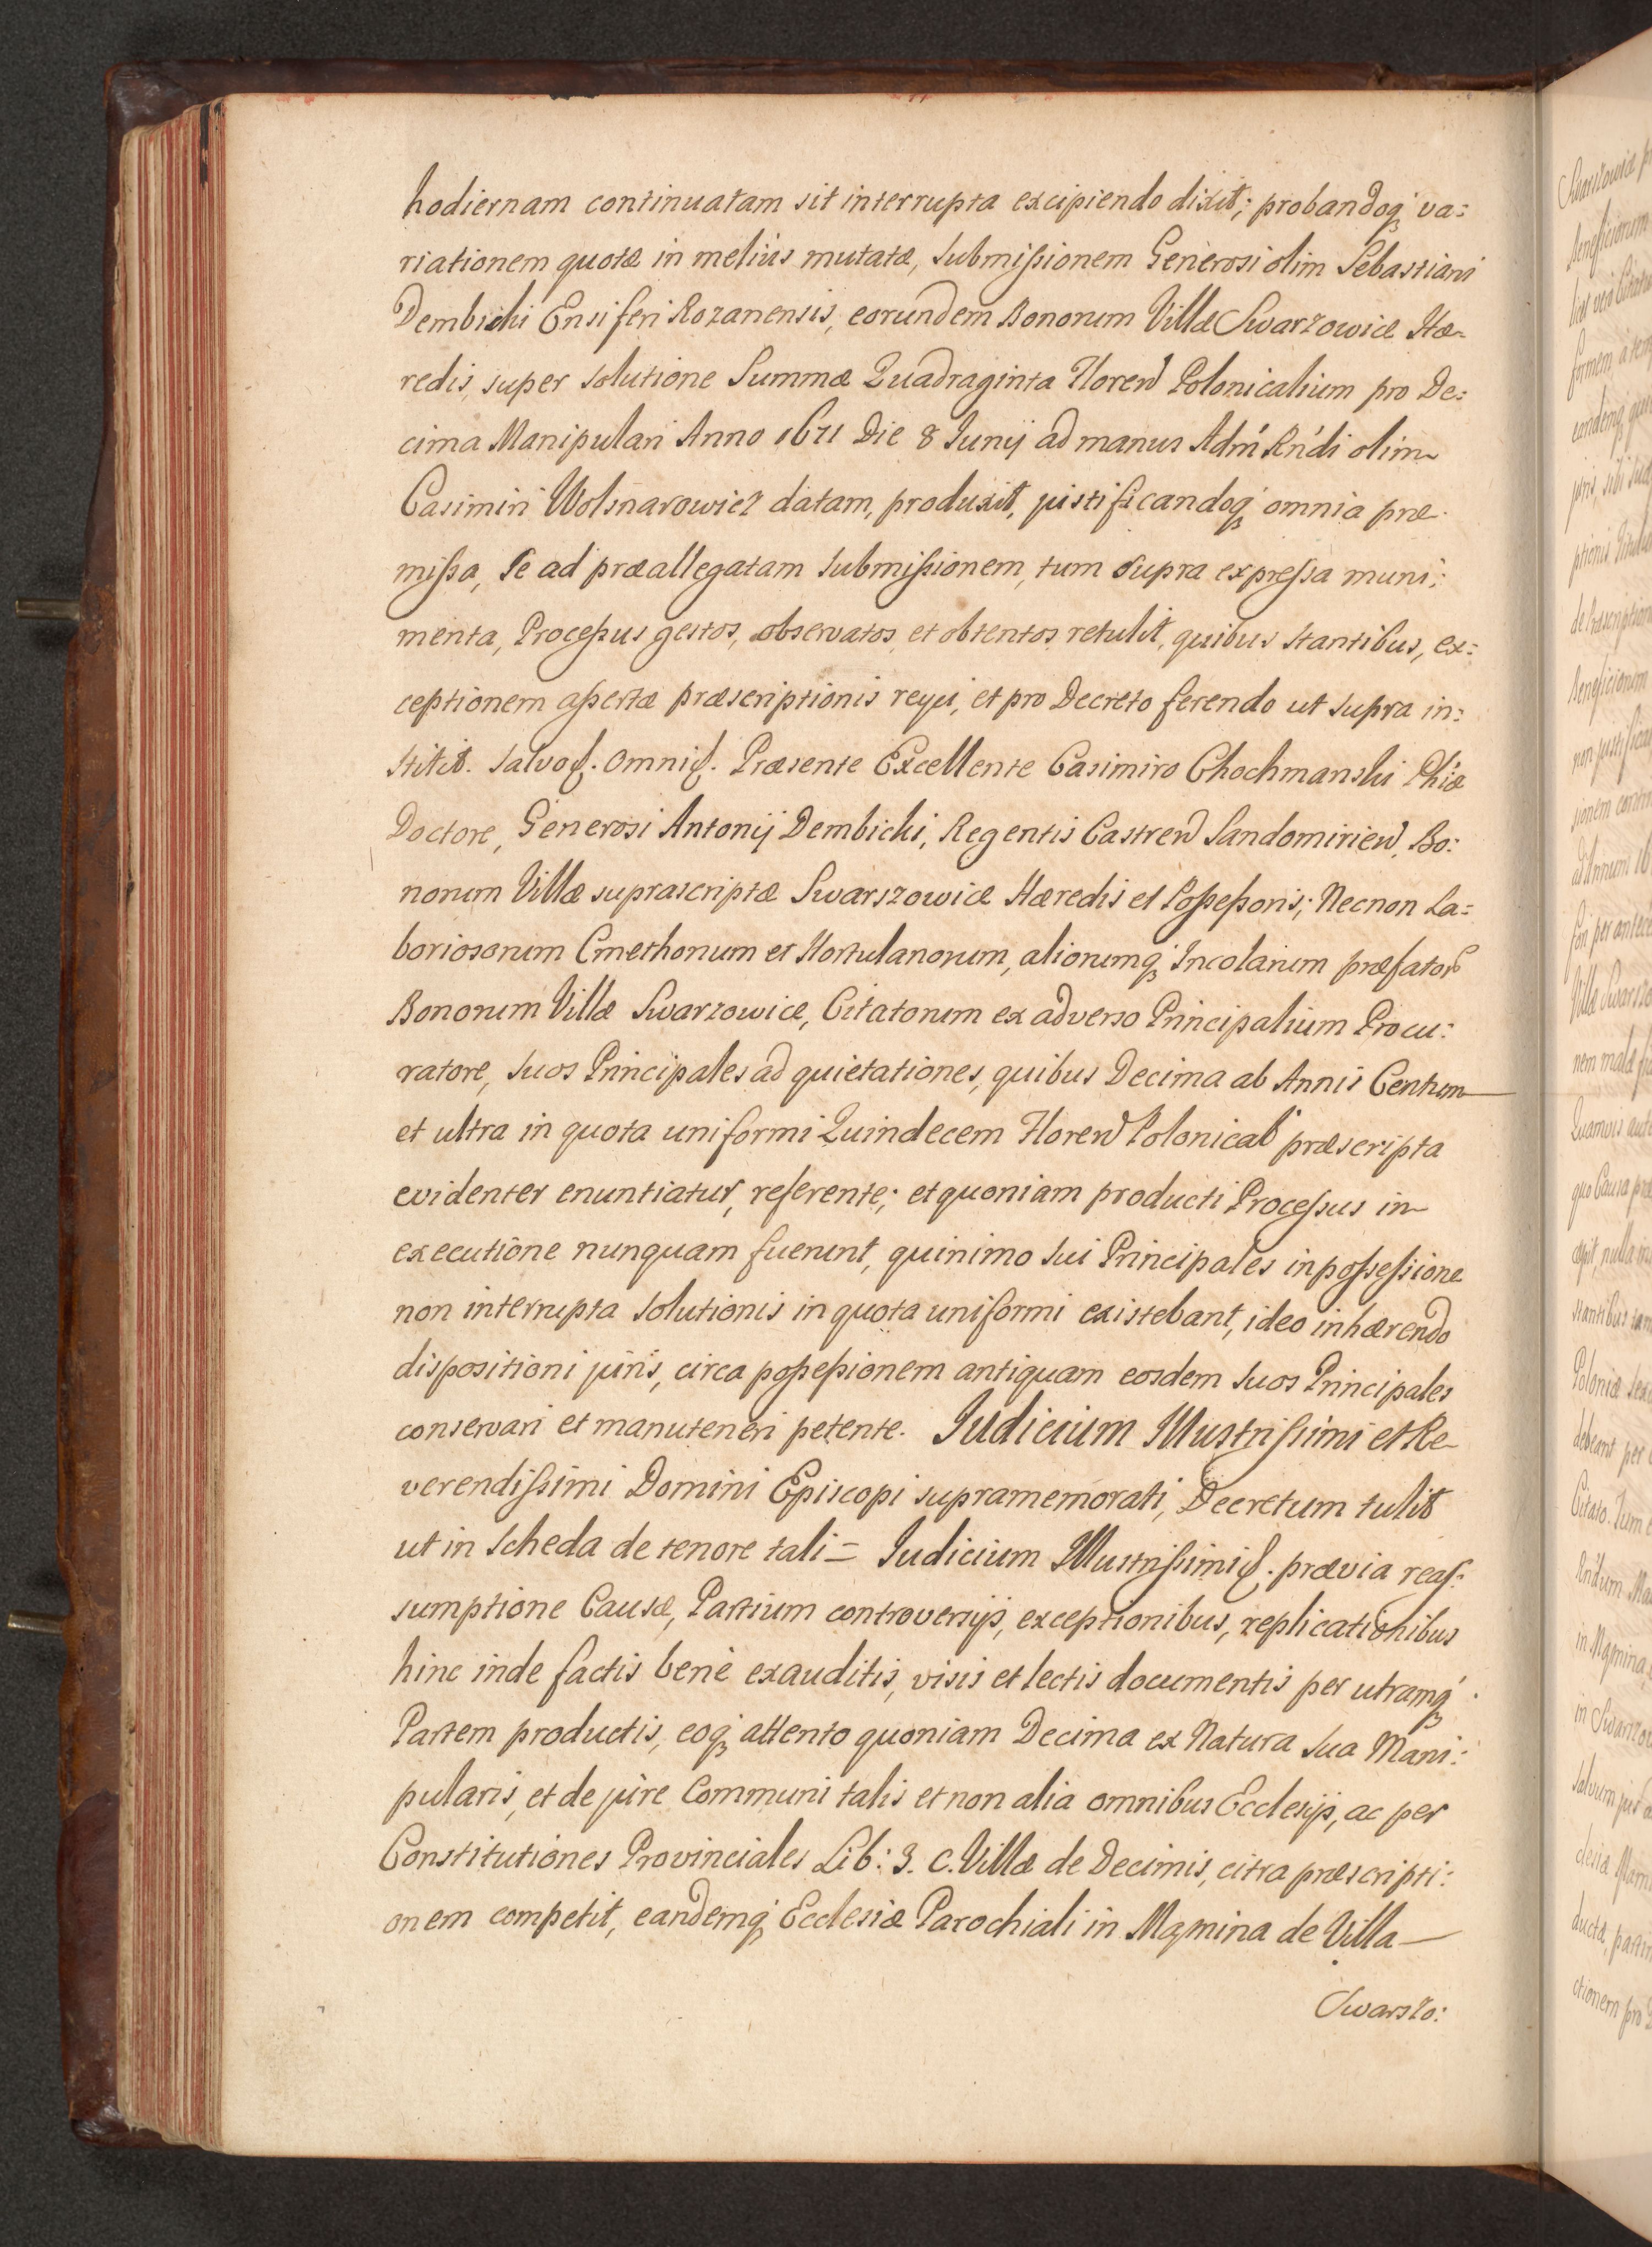 hodiernam continuatam sit interrupta excipiendo dixit; probandoq́ va:
riationem quotæ in meliùs mutatæ, Submißionem Generosi olim Sebastiani
Dembicki Ensiferi Rozanensis, eorundem Bonorum Villæ Swarzowice Hæ-
redis, super Solutione Summæ Quadraginta Floren Polonicalium pro De:
cima Manipulari Anno 1671 Die 8 Junij ad manus Adm Rńdi olim
Casimiri Wolsnarowicz datam, produxit, justificandoq́ omnia præ-
mißa, Se ad præallegatam Submißionem, tum supra expreßa muni:
menta, Proceßus gestos, observatos, et obtentos retulit, quibus Stantibus, ex:
ceptionem aßertæ præscriptionis reyci, et pro Decreto ferendo ut Supra in:
Stitit. Salvoꝭ. Omniꝭ. Præsente Excellente Casimiro Chochmanski Phiæ
Doctore, Generosi Antonij Dembicki, Regentis Castren Sandomirien, Bo:
norum Villæ suprascriptæ Swarszowice Hæredis et Poßeßoris; Necnon La:
boriosorum Cmethonum et Hortulanorum, aliorumq́ Incolarum præfator
Bonorum Villæ Swarzowice, Citatorum ex adverso Principalium Procu:
ratore, Suos Principales ad quietationes, quibus Decima ab Annis Centum
et ultra in quota uniformi Quindecem Floren Polonical præscripta
evidenter enuntiatur, referente; et quoniam producti Proceßus in
executione nunquam fuerunt, quinimo Sui Principales in poßeßione
non interrupta Solutionis in quota uniformi existebant, ideo inhærendo
dispositioni juris, circa poßeßionem antiquam eosdem Suos Principales
conservari et manuteneri petente. Judicium Illustrißimi et Re-
verendißimi Domini Episcopi supramemorati, Decretum tulit
ut in Scheda de tenore tali = Judicium Illustrißimiꝭ. prævia reaß:
sumptione Causæ, Partium controversijs, exceptionibus, replicationibus
hinc inde factis benè exauditis, visis et lectis documentis per utramq́
Partem productis, eoq́ attento quoniam Decima ex Natura Sua Mani:
pularis, et de jùre Communi talis et non alia omnibus Ecclesijs, ac per
Constitutiones Provinciales Lib: 3. C. Villæ de Decimis, citra præscripti:
onem competit, eandemq́ Ecclesiæ Parochiali in Mqmina de Villa
Swarszo: